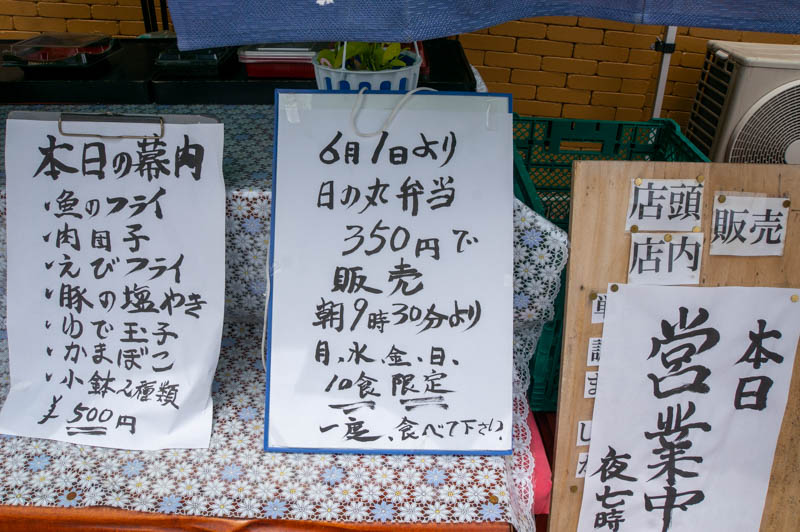 本日の幕内
・魚のフライ
・肉団子
・えびフライ
・豚の塩やき
・ゆで玉子
・かまぼこ
・小鉢2種類
¥500円
6月1日より
日の丸弁当
350円で
販売
朝9時30分より
月、水、金、日、
10食限定
一度、食べて下さい
店頭
販売
店内
本日
営業中
夜七時